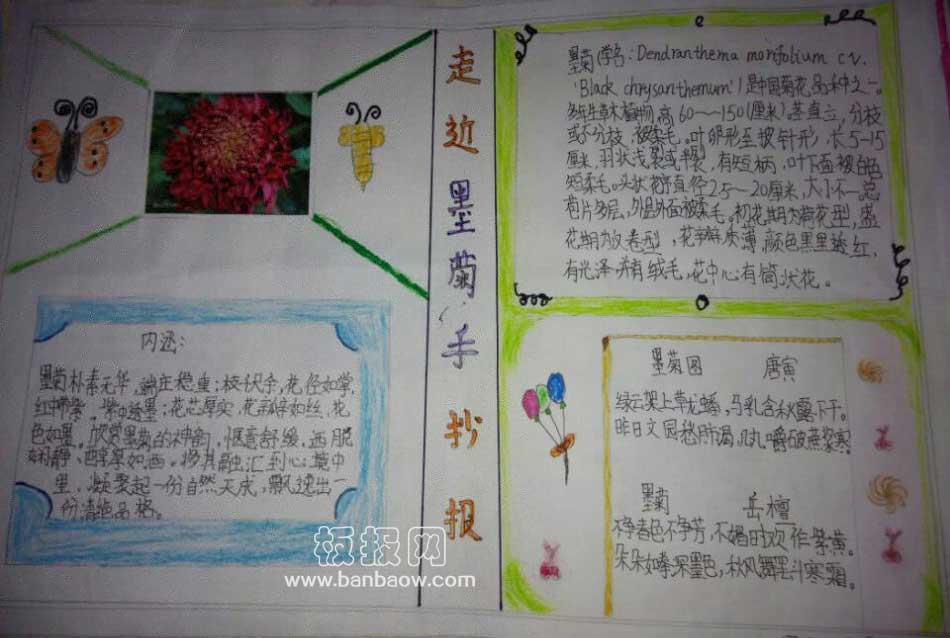 走近墨菊手抄报
墨菊(学名:Dendranthema morifolium cv.
'Black chrysanthemum')是中国菊花品种之一。
多年生草本植物,高60~150(厘米)。茎直立,分枝
或不分枝,被柔毛。叶卵形至披针形,长5-15
厘米,羽状浅裂或半裂,有短柄,叶下面被白色
短柔毛。头状花序直径2.5~20厘米,大小不一。总
苞片多层,外层外面被柔毛。初花期为荷花型,盛
花期为反卷型,花瓣质薄,颜色黑里透红,
有光泽并有绒毛,花中心有筒状花。
内涵:
墨菊朴素无华,端庄稳重;枝尺余,花径如掌,
红中带紫,紫中透墨;花芯厚实,花瓣如丝,花
色如墨。欣赏墨菊的神韵,惬意舒缓,洒脱
娴静、醇厚如酒。将其融汇到心境中
里,凝聚起一份自然天成,飘逸出一
份清绝品格。
墨菊图 唐寅
绿云架上草龙蟠,马乳含秋露下干。
昨日文园
嚼破
寒
墨菊 岳檀
不争春色不争芳,不媚时欢作紫黄。
朵朵如
深墨色,秋风舞罢斗寒霜。
板报网
www.banbaow.com